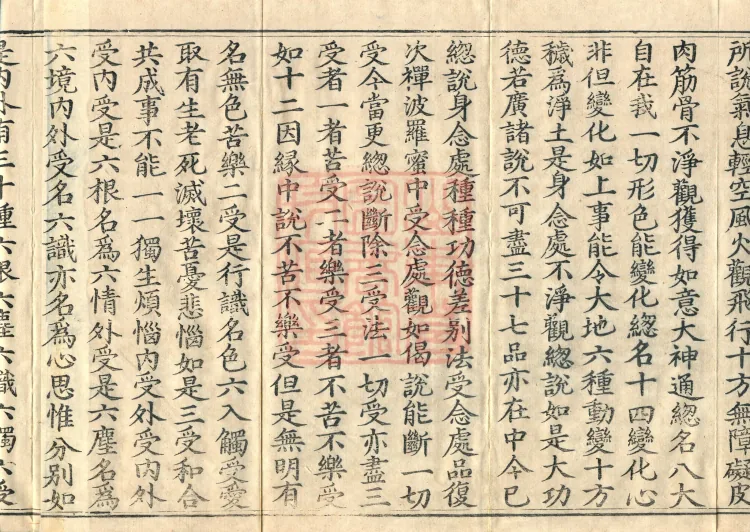 所說氣息輕空風火觀飛行十方無障礙皮
肉筋骨不淨觀獲得如意大神通緫名八大
自在我一切形色能變化緫名十四變化心
非但變化如上事能令大地六種動變十方
穢爲淨土是身念處不淨觀緫說如是大功
德若廣諸說不可盡三十七品亦在中今已
緫說身念處種種功德差别法受念處品復
次禪波羅蜜中受念處觀如偈說能斷一切
受今當更緫說斷除三受法一切受亦盡三
受者一者苦受二者樂受三者不苦不樂受
如十二因緣中說不苦不樂受但是無明有
名無色苦樂二受是行識名色六入觸受愛
取有生老死滅壞苦憂悲惱如是三受和合
共成事不能一一獨生煩惱內受外受內外
受內受是六根名爲六情外受是六塵名爲
六境內外受名六識亦名爲心思惟分别如
是內外有三十種六根六塵六識六觸六受